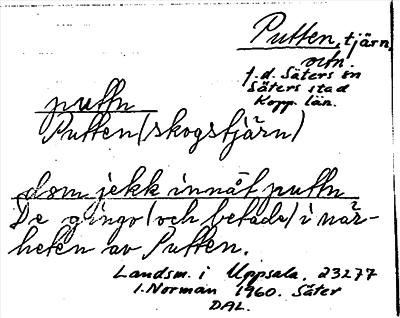 Putten, tjärn,
ocn.
f.d. Säters sn
Säters stad
Kopp. län.
puttn
Putten (skogstjärn)
dom jekk innåt puttn
De gingo (och betade) i när-
heten av Putten.
Landsm. i Uppsala. 23277
I. Norman 1960. Säter
DAL.